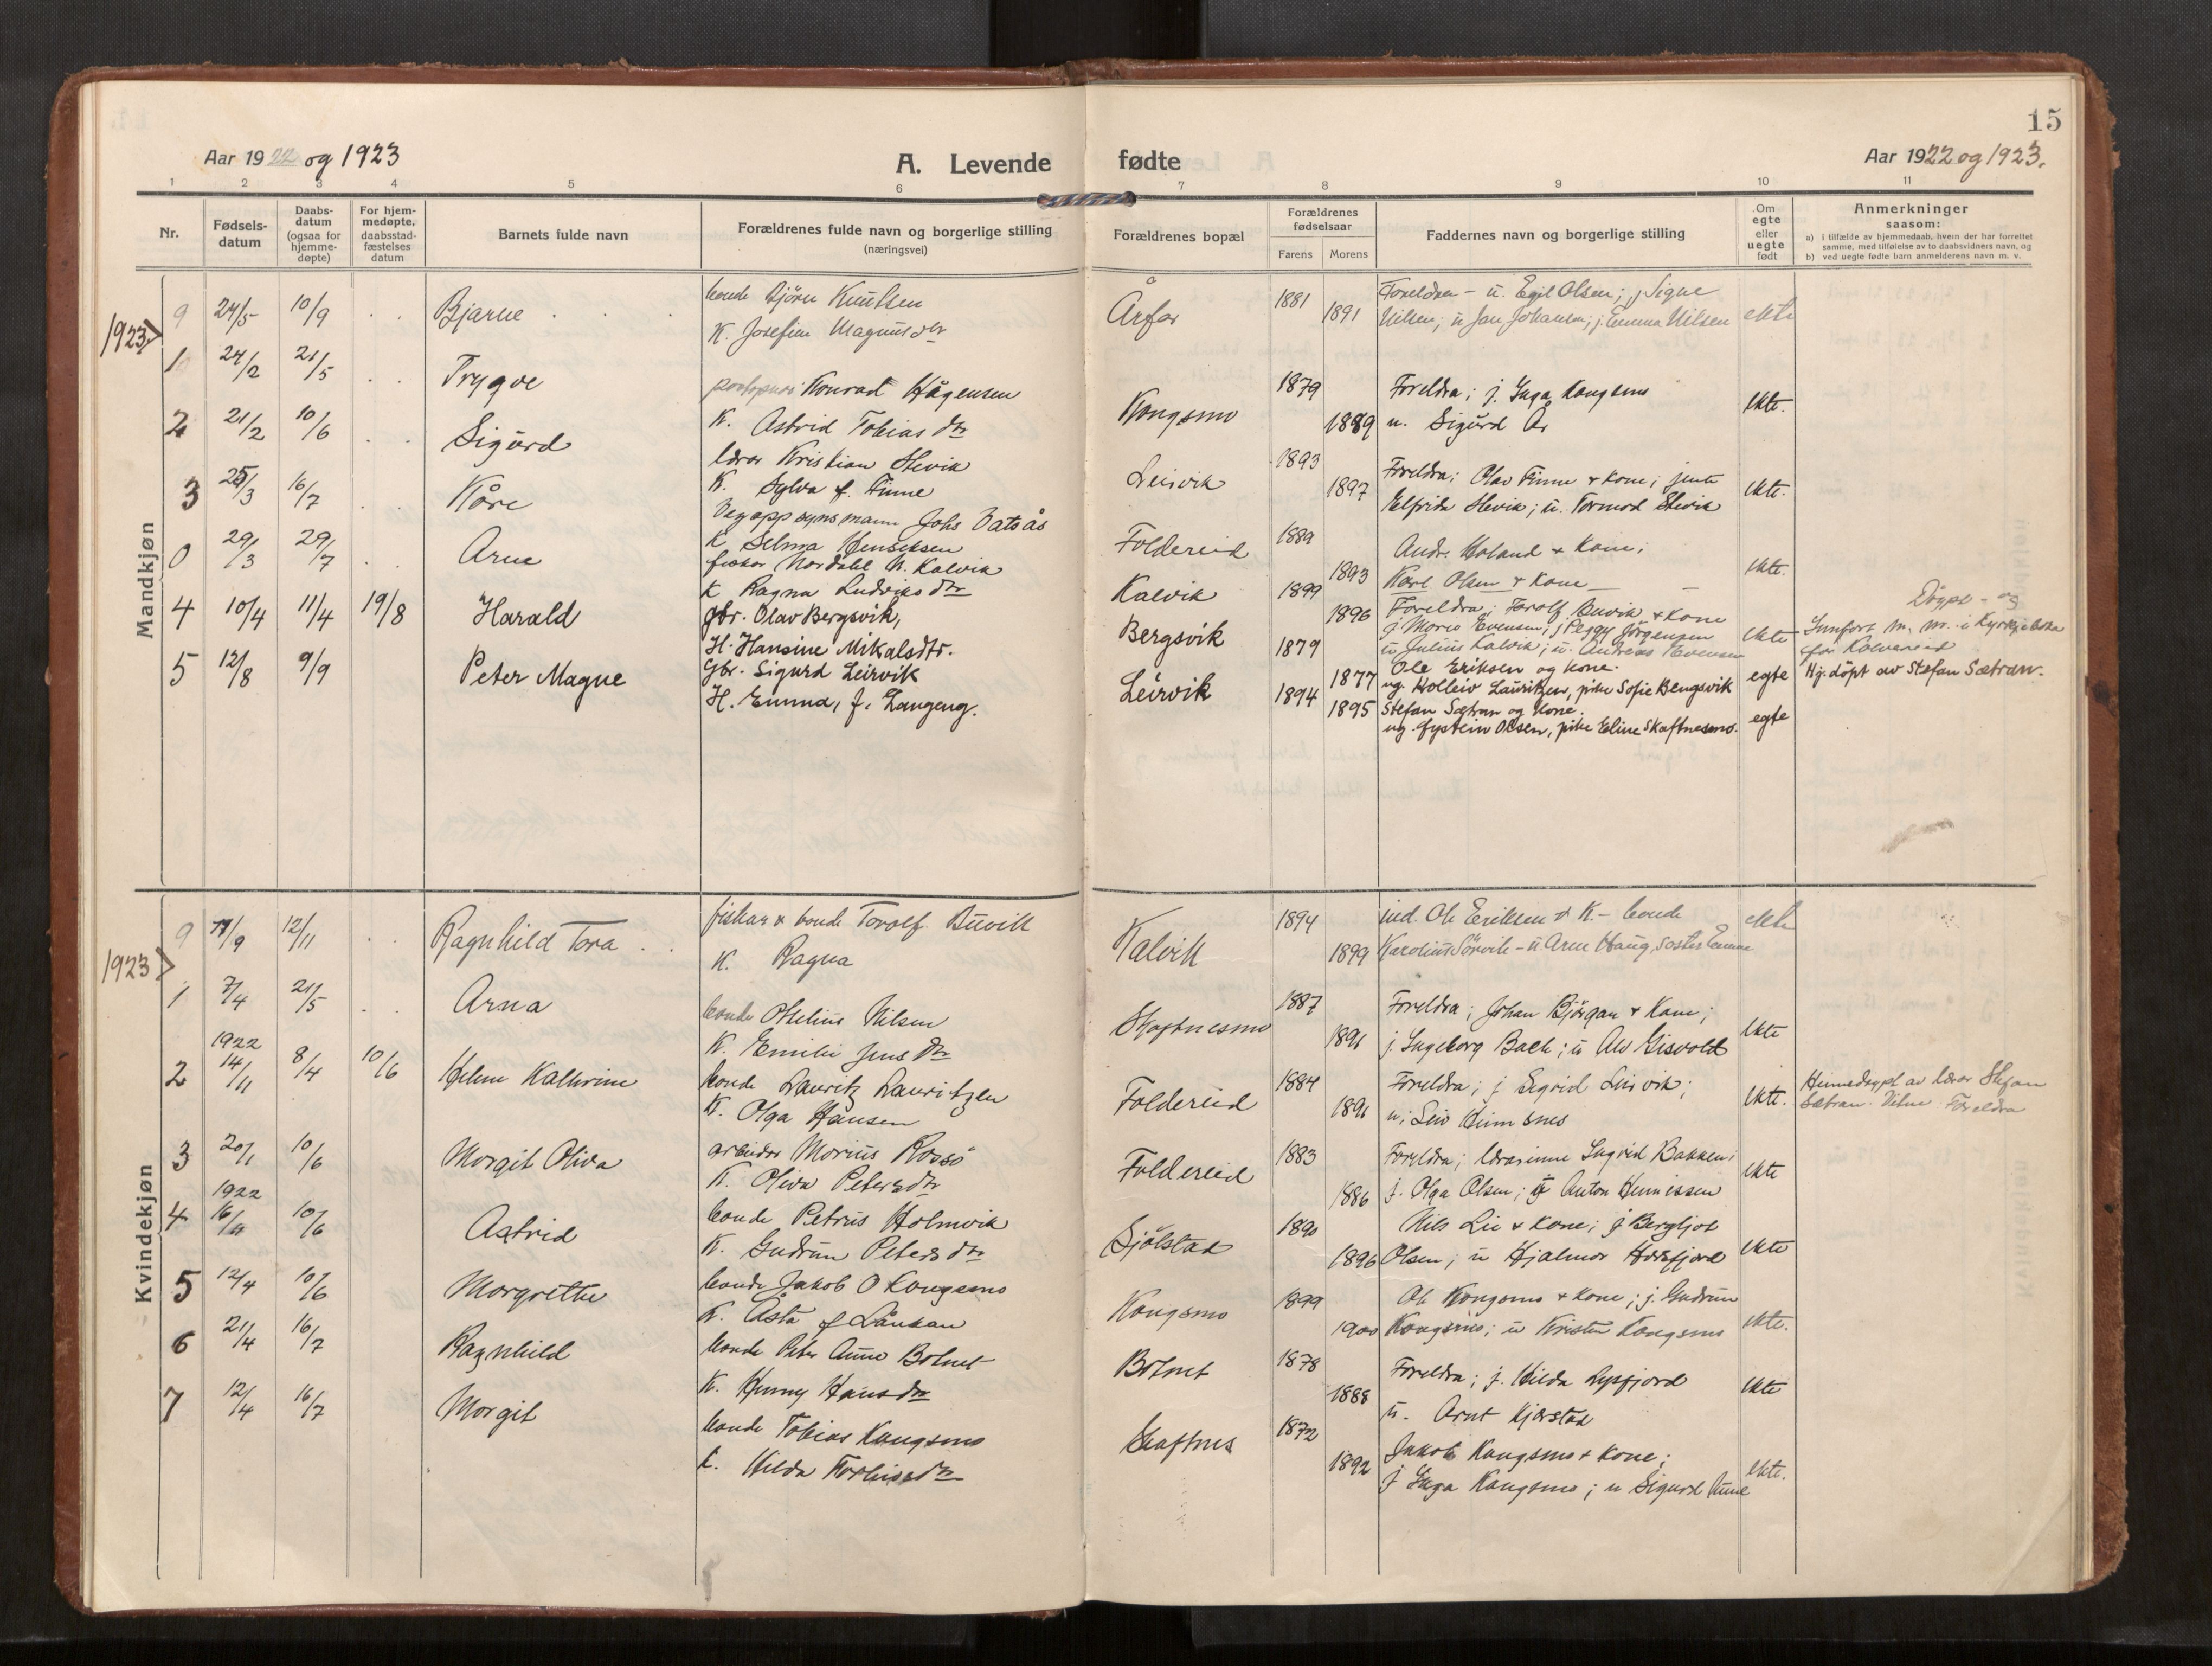 15
Aar 1922 og 1923
A. Levende fødte
Aar 1922 og 1923.
1 2 3 4 5 6 7 8 9 10 11
Nr.
Fødsels-
datum
Daabs-
datum
(ogsaa for
hjemme-
døpte)
For hjem-
medøpte,
daabsstad-
fæstelses
datum
Barnets fulde navn
Forældrenes fulde navn og borgerlige stilling
(næringsvei)
Forældrenes bopæl
Forældrenes
fødselsaar
Farens Morens
Faddernes navn og borgerlige stilling
Om
egte
eller
uegte
født
Anmerkninger
saasom:
a) i tilfælde av hjemmedaab, hvem der har forrettet
samme, med tilføielse av to daabsvidners navn, og
b) ved uegte fødte barn anmelderens navn m. v.
Mandkjøn
9 24/5 10/9 Bjarne
bonde Björn Knutsen
K. Josefine Magnusdtr
Årfor 1881 1891
Foreldra - u. Egil Olsen; j Signe
Nilsen; u Jan Johansen; j. Emma Nilsen
ekte
1923
1 24/2 21/5 Trygve
Konrad Hågensen
K. Astrid Tobiasdtr
Kongsmo 1879 1889
Foreldra; j. Inga Kongsmo
u. Sigurd År
ekte.
2 21/2 10/6 Sigurd
lærar Kristian Stevik
K. Sylva f. Finne
Leirvik 1893 1897
Foreldra; Olav Finne + kone; jente
Elfrida Stevik; u. Tormod Stevik
ekte.
3 25/3 16/7 Kåre
Vegoppsynsmann Johs Vatsås
K Selma Henseksen
Foldereid 1889 1893
Andr. Høland + kone;
Karl Olsen + kone
ekte.
0 29/3 29/7 Arne
fiskar Nordahl N. Kalvik
K Ragna Ludviksdtr
Kalvik 1899 1896
Foreldra; Torolf Buvik + kone
j Marie Evensen; j Peggy Jørgensen
u Julius Kalvik; u. Andreas Evensen
ekte
Døypt - og
Innført m. m. i Kyrkjeboka
for Kolvereid
4 10/4 11/4 19/8 Harald
gbr. Olav Bergsvik,
H. Hansine Mikalsdtr.
Bergsvik 1879 1877
Ole Eriksen og kone.
ug. Holleiv Lauritzen, pike Sofie Bengsvik
egte
Hj. döpt av Stefan Sætran.
5 12/8 9/9 Peter Magne
Gbr. Sigurd Leirvik
H. Emma, f. Langeng.
Leirvik 1894 1895
Stefan Sætran og kone.
ug. Øystein Olsen, pike Eline Skaftnesmo.
egte
Kvindekjøn
9 11/9 12/11 Ragnhild Tora
fiskar & bonde Torolf Buvik
K. Ragna
Kalvik 1894 1899
ind. Ole Eriksen & K. - bonde
Karolius Sørvik - u Arne Haug, søster Emma
ekte
1923
1 7/4 21/5 Arna
bonde Othelius Nilsen
K. Emilie Jensdtr
Skaftnesmo 1887 1891
Foreldra; Johan Bjørgan + kone;
j. Ingeborg Bach; u Alv Gisvold
ekte
1922
2 14/11 8/4 10/6 Helene Kathrine
bonde Lauritz Lauritzen
K. Olga Hansen
Foldereid 1884 1891
Foreldra; j Sigrid Leirvik;
u; Leiv Heimsnes
ekte.
Heimedøypt av lærar Stefan
Sætran. Vitne: Foreldra
3 20/1 10/6 Morgit Oliva
arbeidar Morius Rossö
K. Oliva Petersdtr
Foldereid 1883 1886
Foreldra; lærarinne Ingrid Bakken;
j. Olga Olsen; u Anton Hennissen
ekte
1922
4 16/11 10/6 Astrid
bonde Petrus Holmvik
K. Gudrun Petersdtr
Sjölstad 1890 1896
Nils Lie + kone; j Bergljot
Olsen; u Hjalmar Horsfjord
ekte
5 12/4 10/6 Morgrethe
bonde Jakob O Kongsmo
K. Åsta f Lånkan
Kongsmo 1899 1900
Ole Kongsmo + kone; j. Gudrun
Kongsmo; u Kristen Kongsmo
ekte.
6 21/4 16/7 Ragnhild
bonde Peter Anno Botnet
K. Henny Hansdtr
Botnet 1878 1888
Foreldra; j. Hilda Lysfjord
u. Arnt Kjærstad
ekte
7 12/4 16/7 Morgit
bonde Tobias Kongsmo
K. Hilda Torbergsdtr
Skaftnes 1872 1892
Jakob Kongsmo + kone;
j Inga Kongsmo; u Sigurd Aune
ekte.